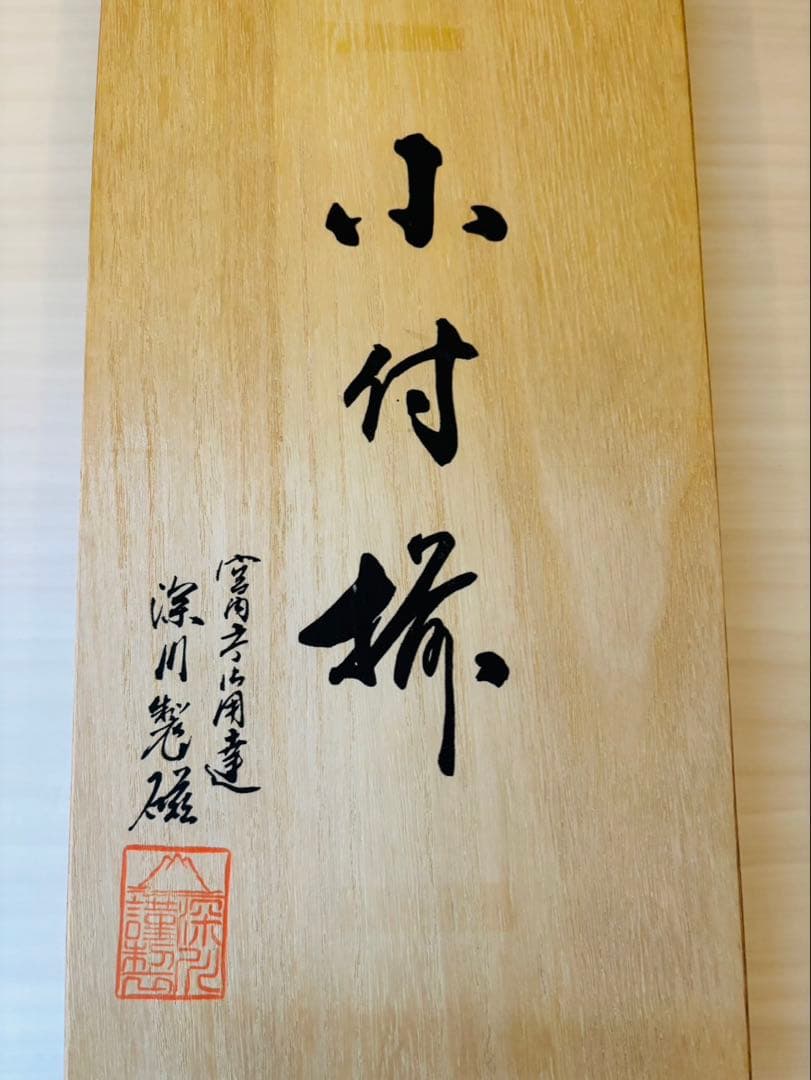 小付揃
宮内庁御用達
深川製磁
深川
謹製